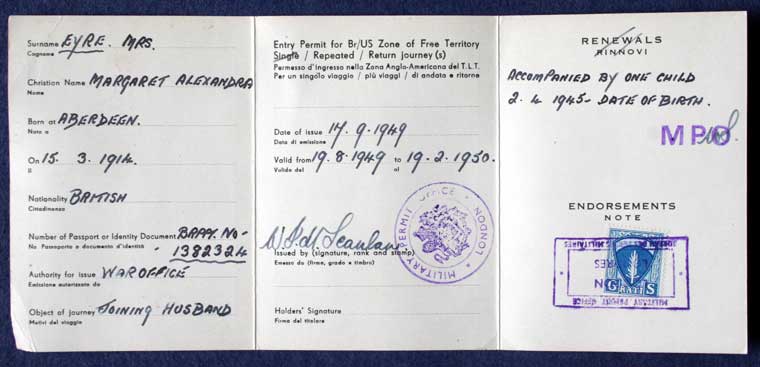 Surname EYRE. MRS.
Cognome
Christian Name MARGARET ALEXANDRA
Nome
Born at ABERDEEN.
Nato a
On 15. 3. 1914.
Il
Nationality BRITISH
Cittadinanza
Number of Passport or Identity Document BRPY. NO-
No Passaporto o documento d'identità - 1382324
Authority for issue WAR OFFICE
Emissione autorizzata da
Object of journey JOINING HUSBAND
Motivi del viaggio
Entry Permit for Br/US Zone of Free Territory
Single / Repeated / Return journey (s)
Permesso d'ingresso nella Zona Anglo-Americana del T.L.T.
Per un singolo viaggio / più viaggi / di andata e ritorno
Date of issue 14. 9. 1949
Data di emissione
Valid from 19. 8. 1949 to 19. 2. 1950.
Valido dal al
Issued by (signature, rank and stamp)
Emesso da (firma, grado e timbro)
MILITARY PERMIT OFFICE * LONDON *
Holders' Signature
Firma del titolare
RENEWALS
RINNOVI
ACCOMPANIED BY ONE CHILD
2. 4 1945 - DATE OF BIRTH.
MPO
ENDORSEMENTS
NOTE
GRATIS
MILITARY PERMIT OFFICE